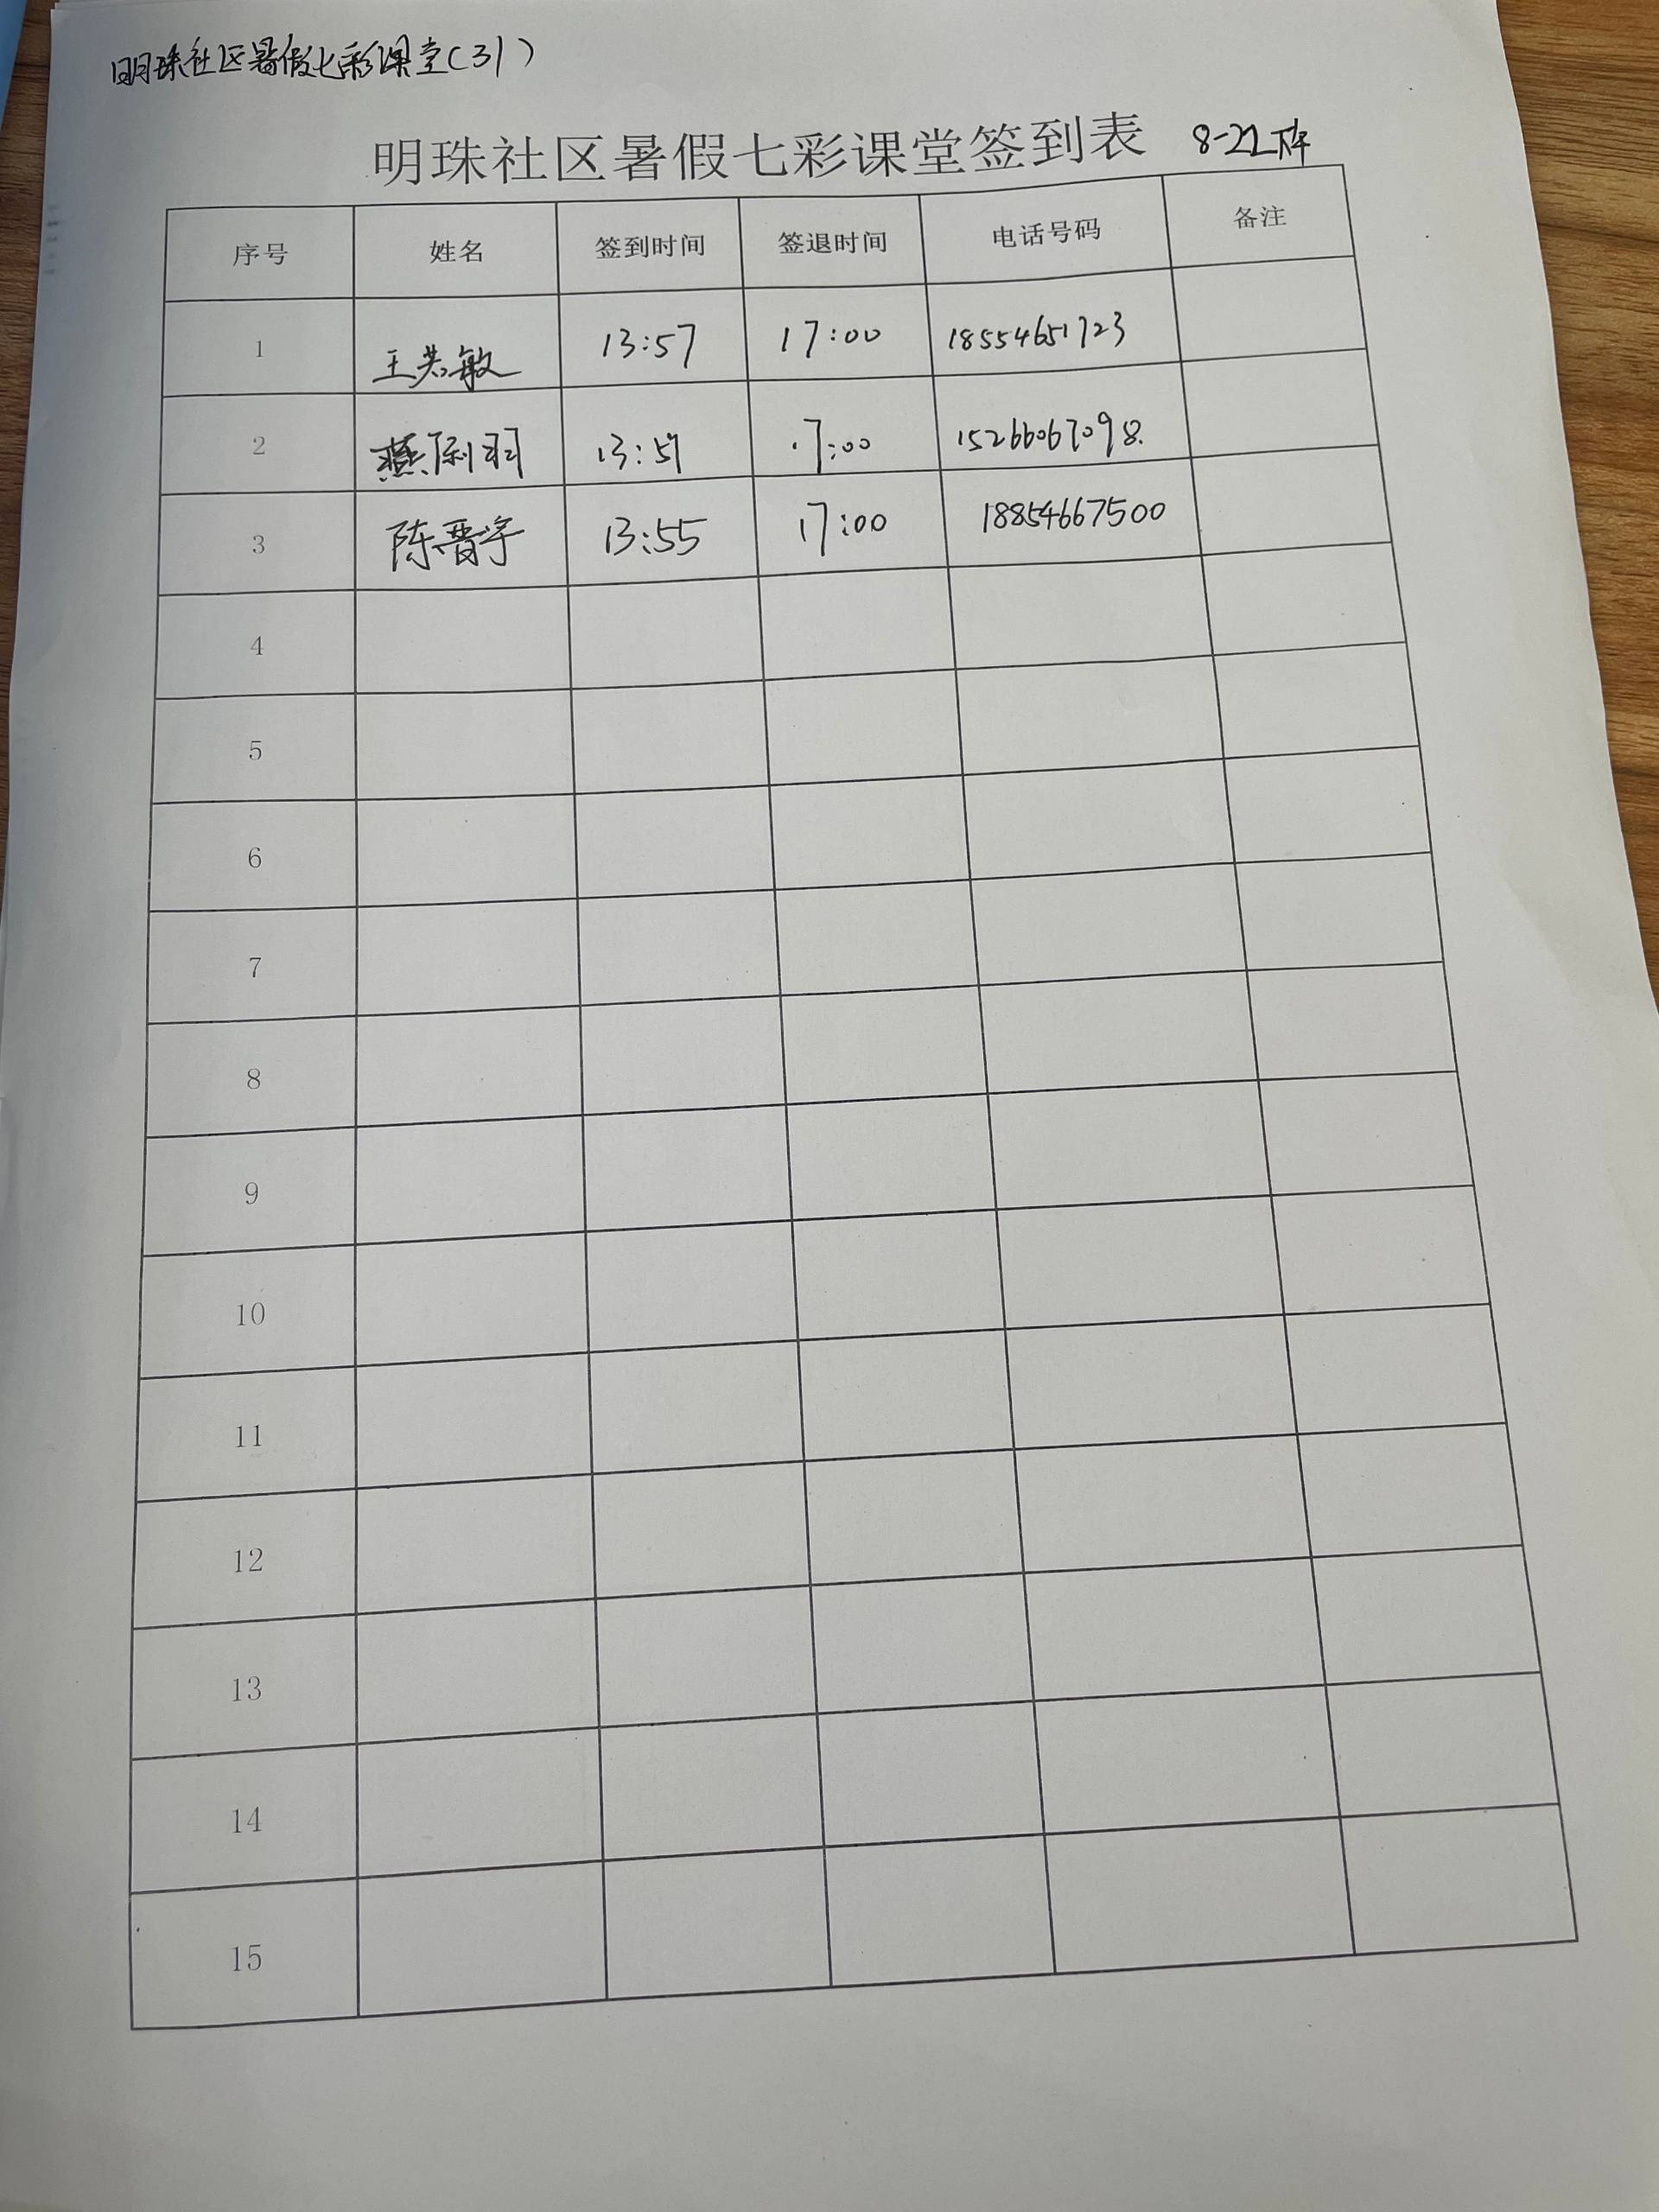 明珠社区暑假七彩课堂(31)
明珠社区暑假七彩课堂签到表 8-22下午
序号 姓名 签到时间 签退时间 电话号码 备注
1 王芸敏 13:57 17:00 18554651723
2 燕 羽 13:57 17:00 15266067098
3 陈晋宇 13:55 17:00 18854667500
4
5
6
7
8
9
10
11
12
13
14
15